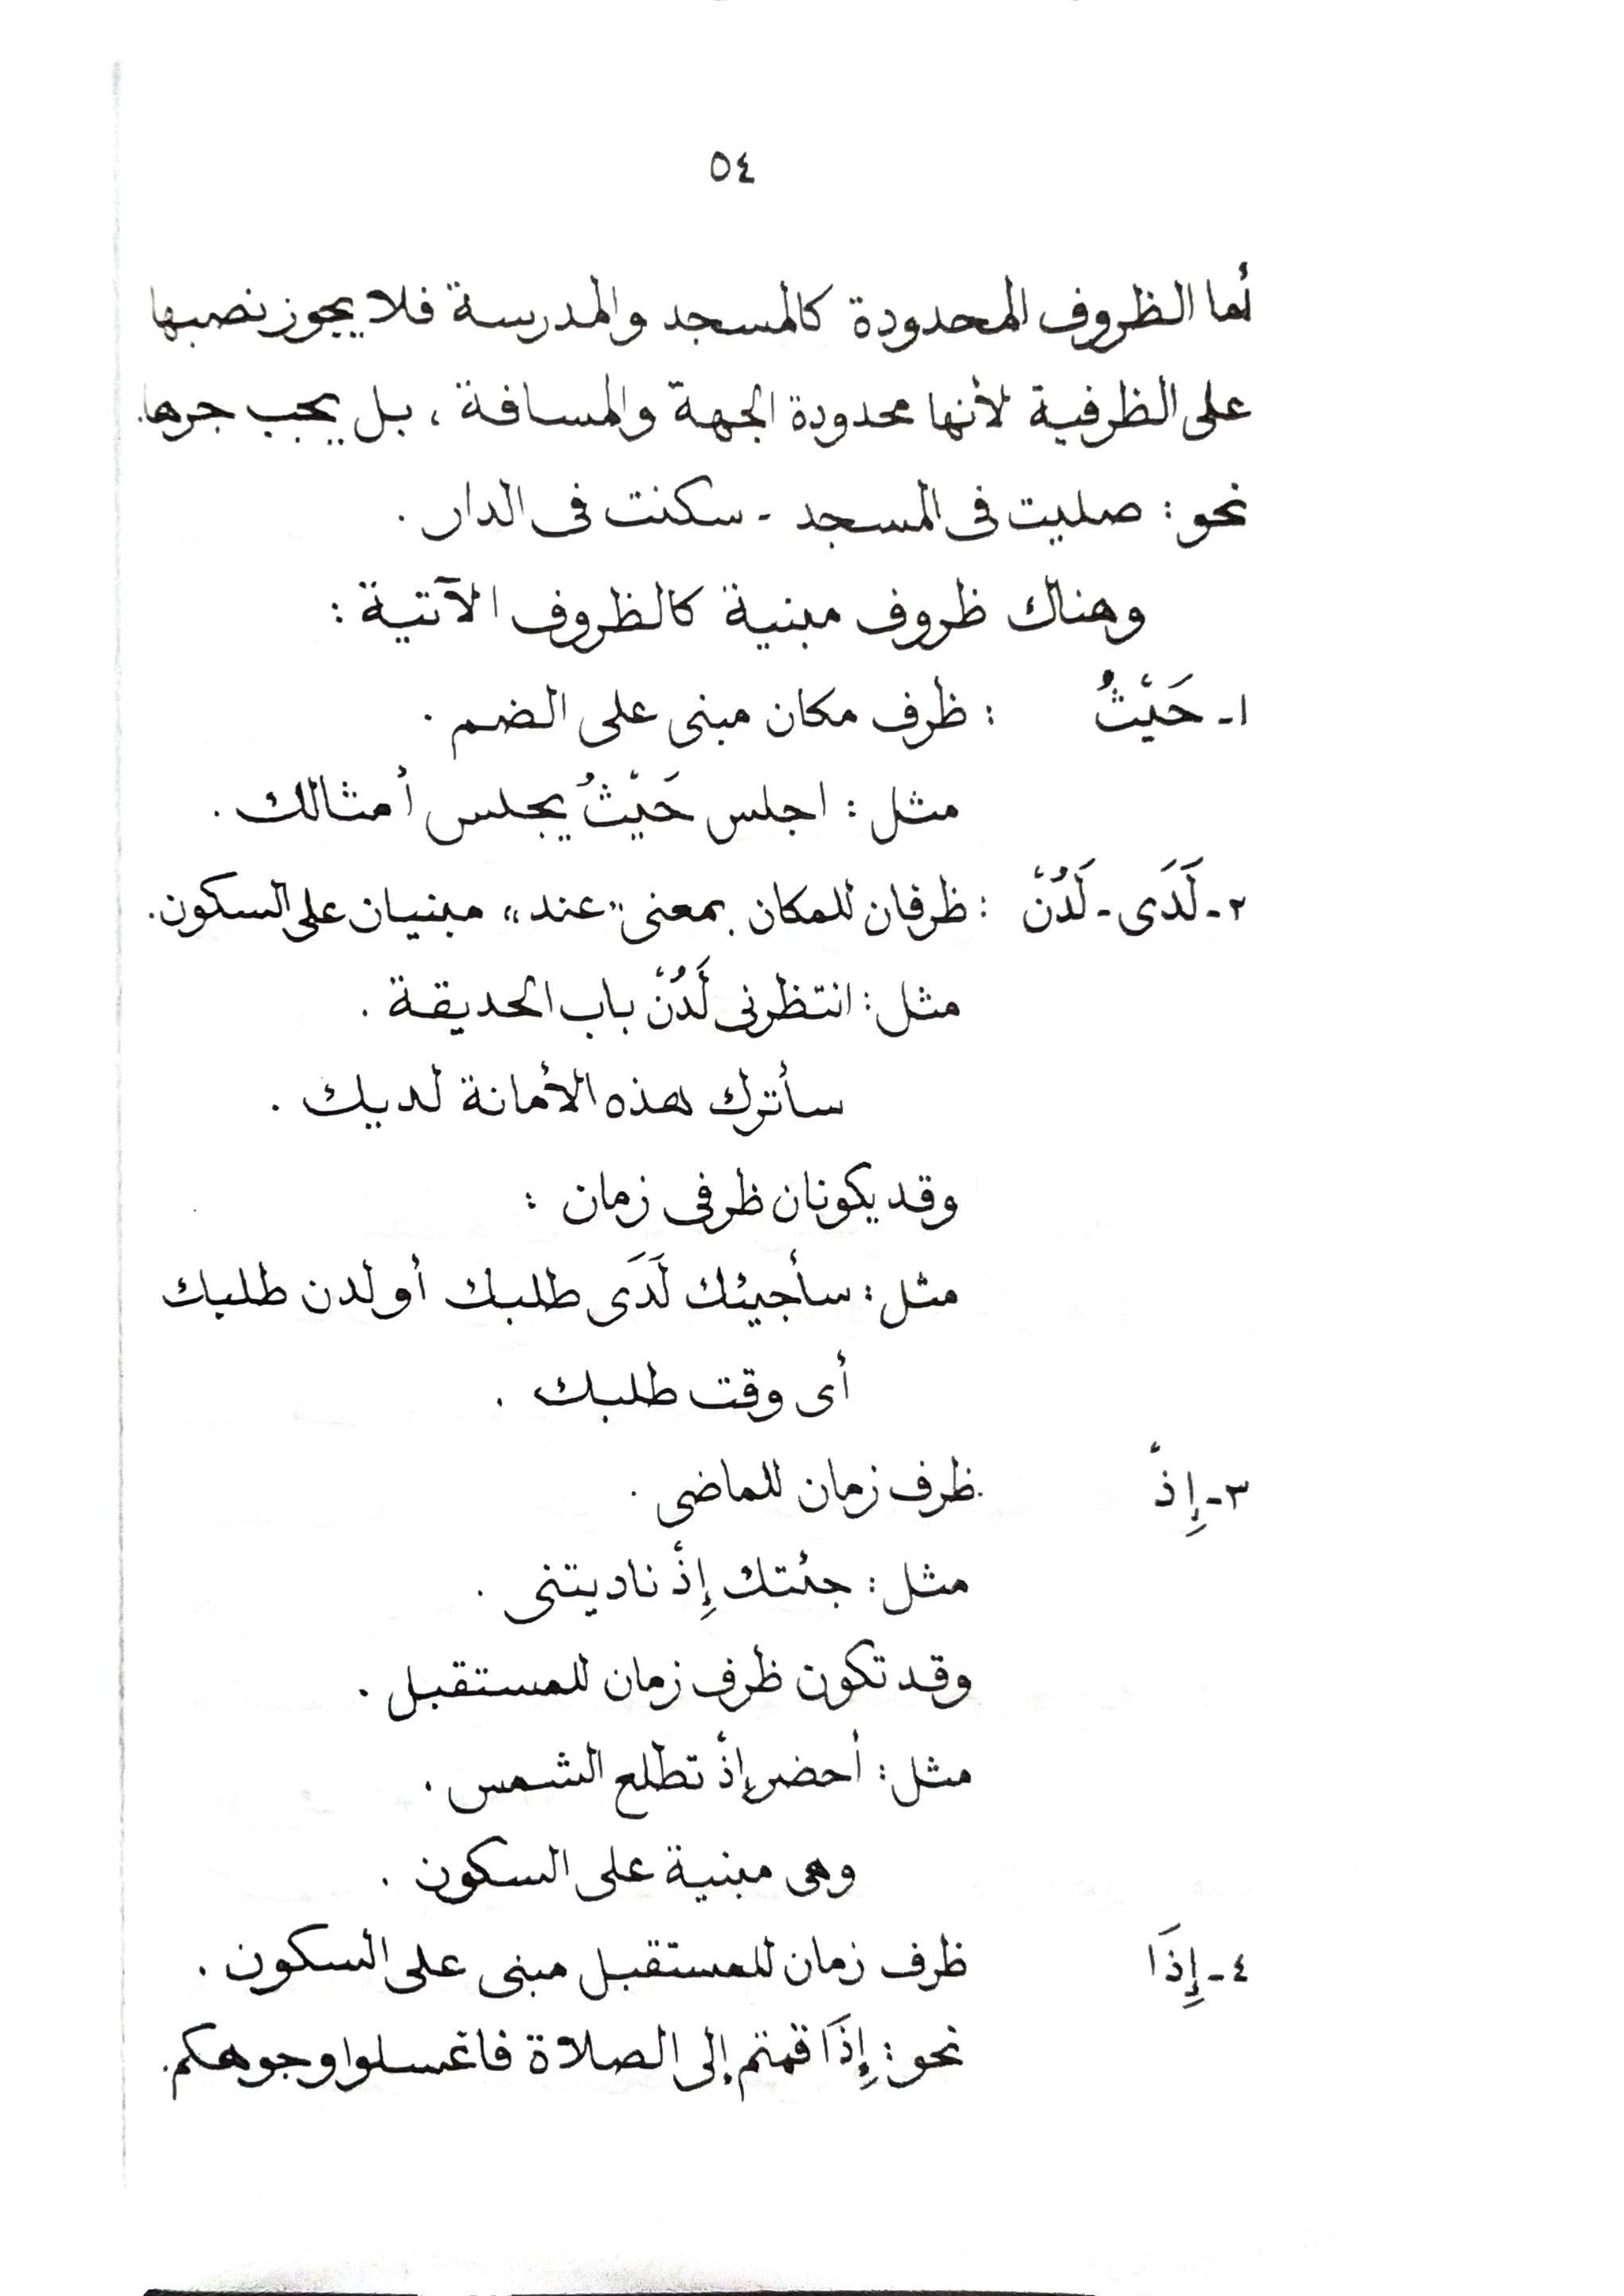 ٥٤
أما الظروف المحدودة كالمسجد والمدرسة فلا يجوز نصبها
على الظرفية لأنها محدودة الجهة والمسافة ، بل يجب جرها.
نحو : صليت فى المسجد - سكنت فى الدار .
وهناك ظروف مبنية كالظروف الآتية :
١- حَيْثُ : ظرف مكان مبنى على الضم .
مثل : اجلس حَيْثُ يجلس أمثالك .
٢- لَدَى - لَدُنْ : ظرفان للمكان بمعنى "عند" مبنيان على السكون.
مثل : انتظرنى لَدُنْ باب الحديقة .
سأترك هذه الأمانة لديك .
وقد يكونان ظرفى زمان :
مثل : سأجيئك لَدَى طلبك أو لدن طلبك
أى وقت طلبك .
٣- إِذْ ظرف زمان للماضى .
مثل : جئتك إِذْ ناديتنى .
وقد تكون ظرف زمان للمستقبل .
مثل : أحضر إِذْ تطلع الشمس .
وهى مبنية على السكون .
٤- إِذَا ظرف زمان للمستقبل مبنى على السكون .
نحو : إِذَا قمتم إلى الصلاة فاغسلوا وجوهكم.